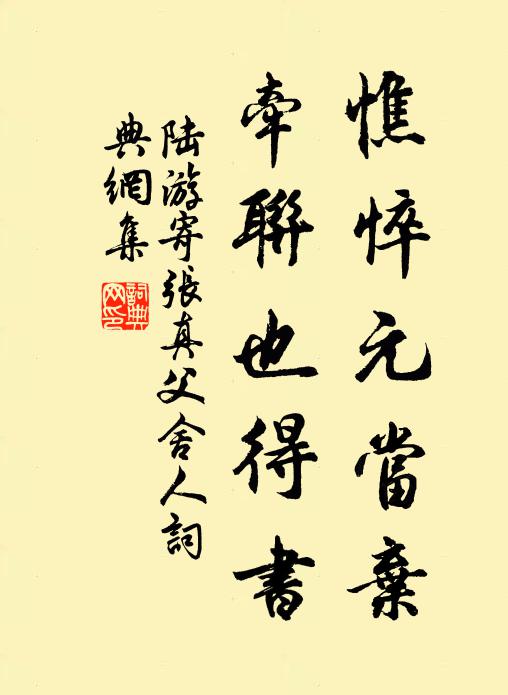 憔悴元當棄
牽聯也得書
陸游寄張真父舍人詞
典網集
詞典網印